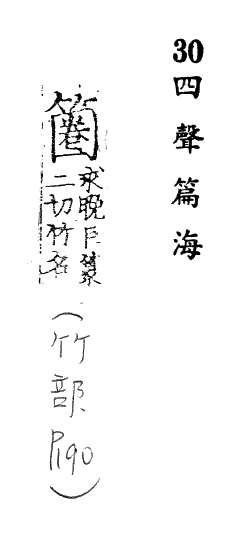 30 四聲篇海
求晚巨篆
二切竹名
(竹部 P190)